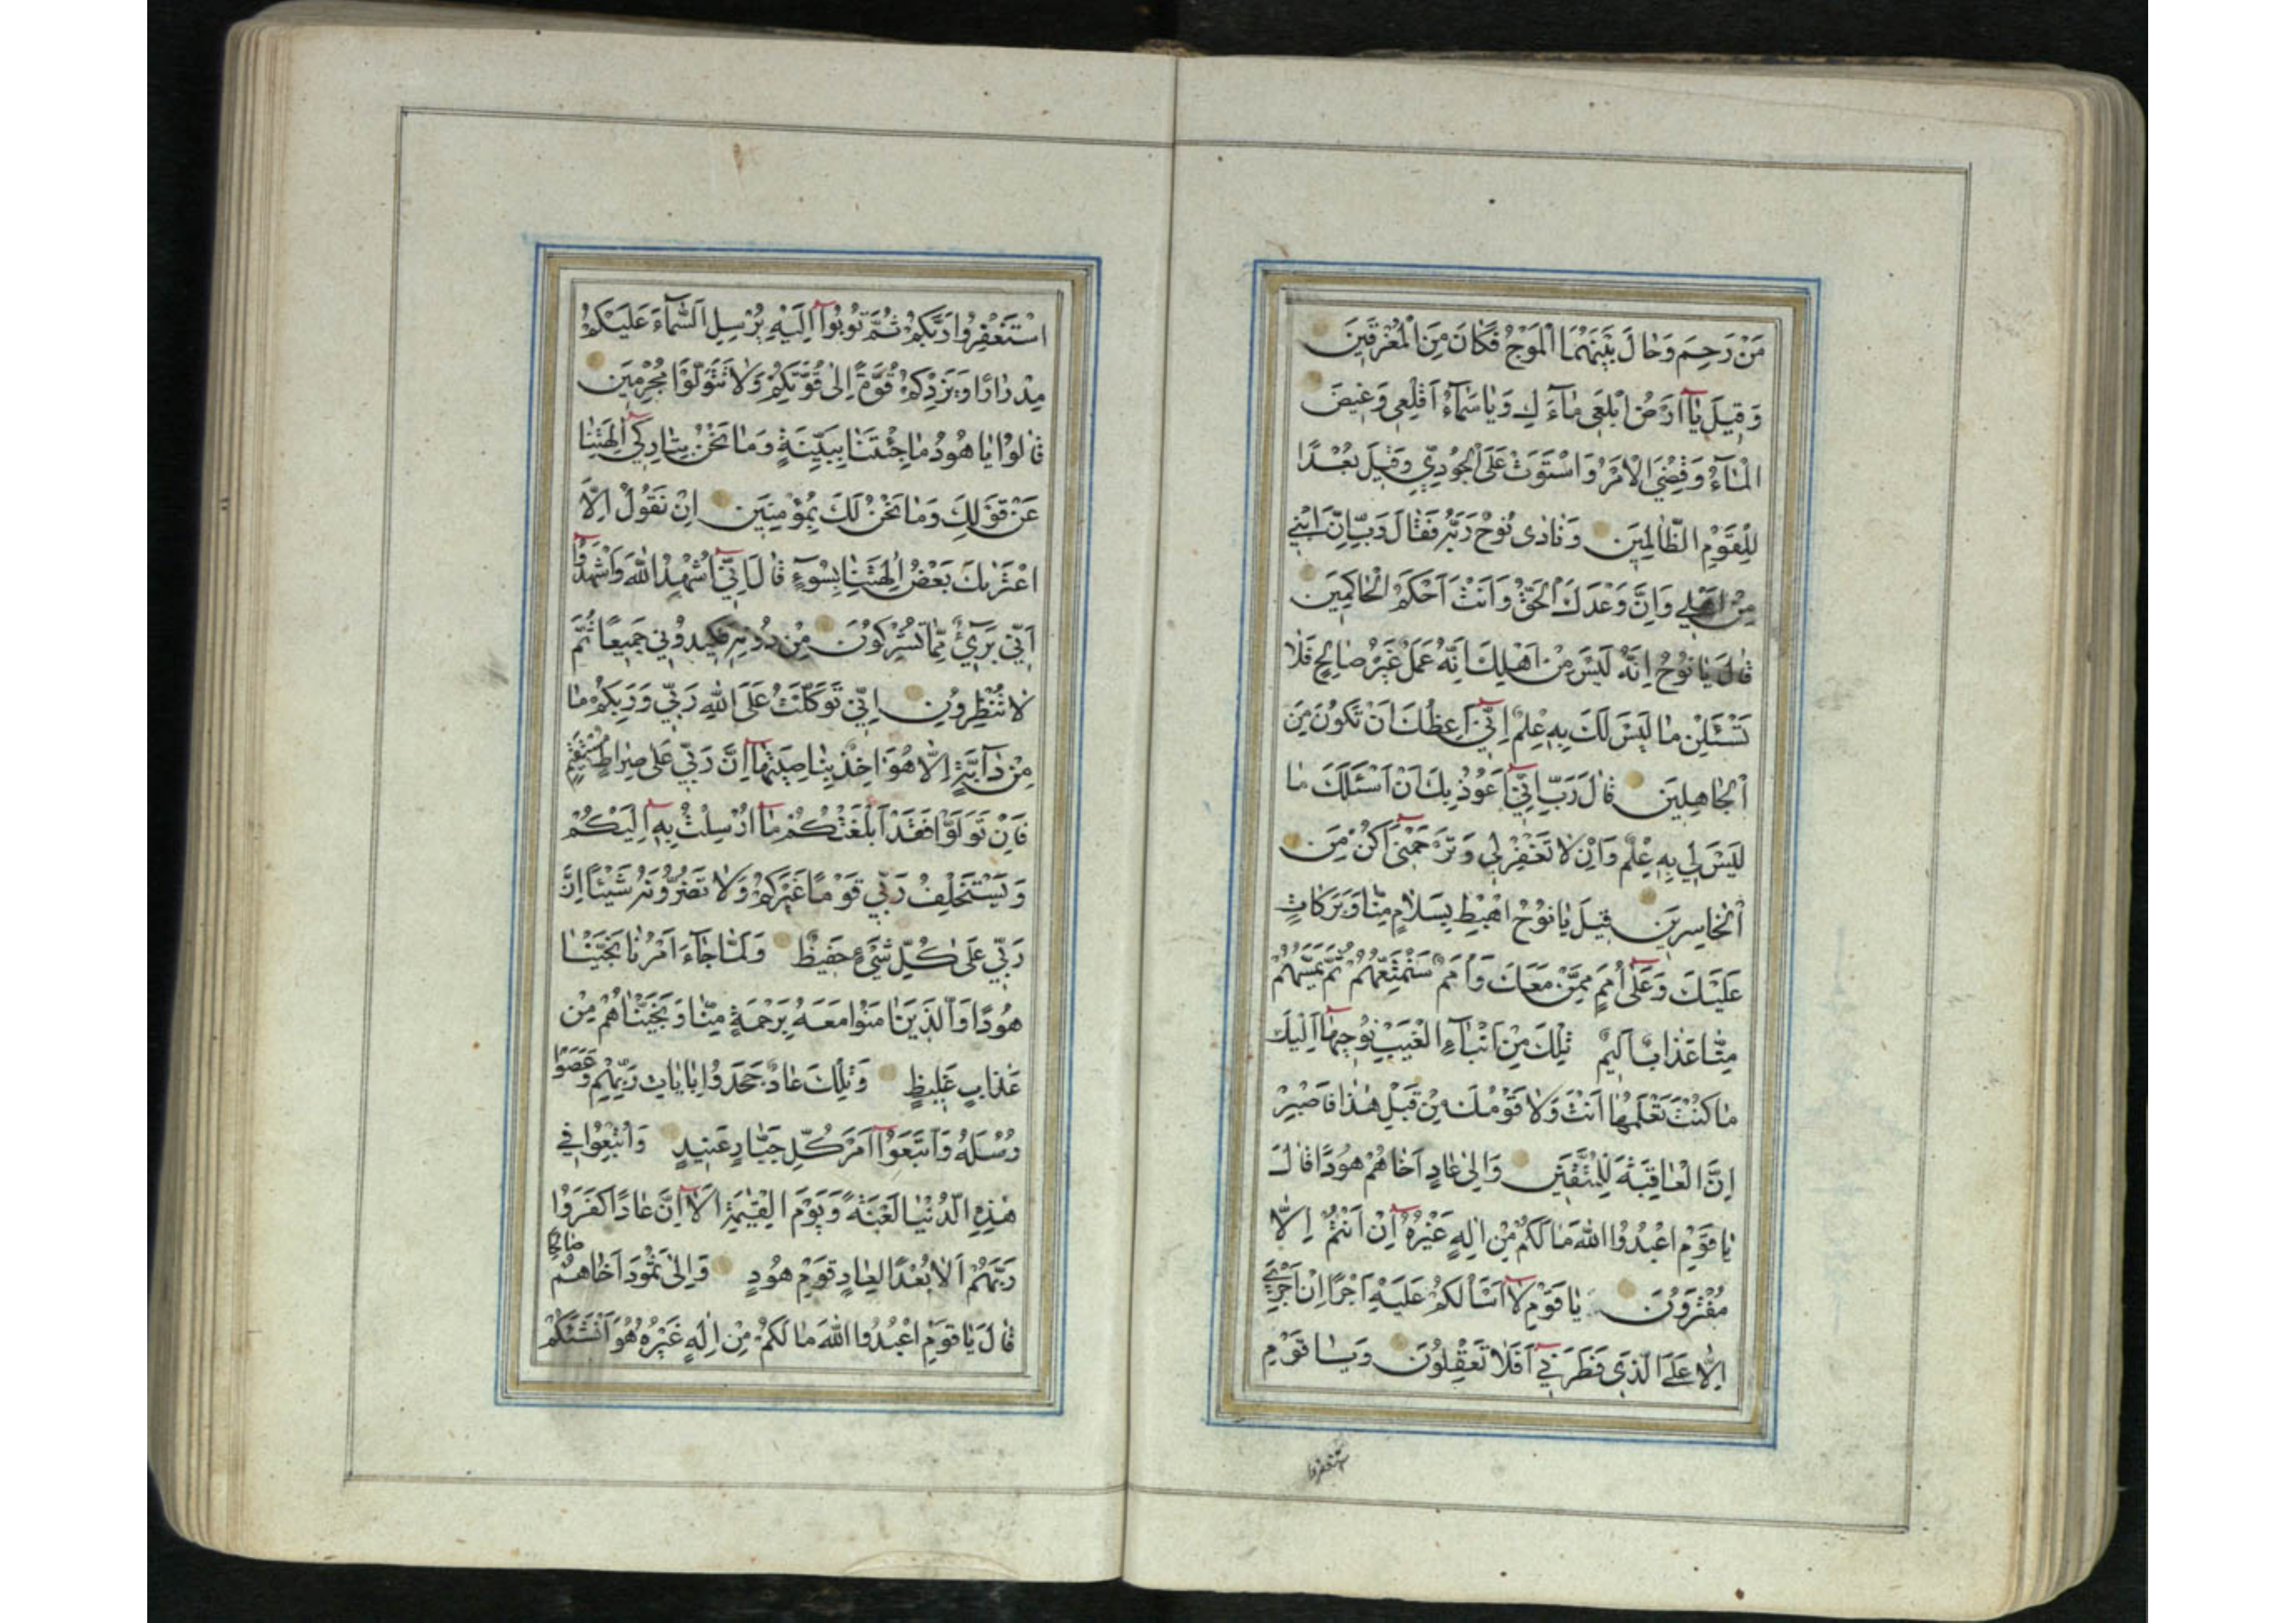 مَنْ رَحِمَ وَحَالَ بَيْنَهُمَا الْمَوْجُ فَكَانَ مِنَ الْمُغْرَقِينَ
وَقِيلَ يَا أَرْضُ ابْلَعِي مَاءَكِ وَيَا سَمَاءُ أَقْلِعِي وَغِيضَ
الْمَاءُ وَقُضِيَ الْأَمْرُ وَاسْتَوَتْ عَلَى الْجُودِيِّ وَقِيلَ بُعْدًا
لِلْقَوْمِ الظَّالِمِينَ وَنَادَى نُوحٌ رَبَّهُ فَقَالَ رَبِّ إِنَّ ابْنِي
مِنْ أَهْلِي وَإِنَّ وَعْدَكَ الْحَقُّ وَأَنْتَ أَحْكَمُ الْحَاكِمِينَ
قَالَ يَا نُوحُ إِنَّهُ لَيْسَ مِنْ أَهْلِكَ إِنَّهُ عَمَلٌ غَيْرُ صَالِحٍ فَلَا
تَسْئَلْنِ مَا لَيْسَ لَكَ بِهِ عِلْمٌ إِنِّي أَعِظُكَ أَنْ تَكُونَ مِنَ
الْجَاهِلِينَ قَالَ رَبِّ إِنِّي أَعُوذُ بِكَ أَنْ أَسْئَلَكَ مَا
لَيْسَ لِي بِهِ عِلْمٌ وَإِنْ لَا تَغْفِرْ لِي وَتَرْحَمْنِي أَكُنْ مِنَ
الْخَاسِرِينَ قِيلَ يَا نُوحُ اهْبِطْ بِسَلَامٍ مِنَّا وَبَرَكَاتٍ
عَلَيْكَ وَعَلَى أُمَمٍ مِمَّنْ مَعَكَ وَأُمَمٌ سَنُمَتِّعُهُمْ ثُمَّ يَمَسُّهُمْ
مِنَّا عَذَابٌ أَلِيمٌ تِلْكَ مِنْ أَنْبَاءِ الْغَيْبِ نُوحِيهَا إِلَيْكَ
مَا كُنْتَ تَعْلَمُهَا أَنْتَ وَلَا قَوْمُكَ مِنْ قَبْلِ هَذَا فَاصْبِرْ
إِنَّ الْعَاقِبَةَ لِلْمُتَّقِينَ وَإِلَى عَادٍ أَخَاهُمْ هُودًا قَالَ
يَا قَوْمِ اعْبُدُوا اللَّهَ مَا لَكُمْ مِنْ إِلَهٍ غَيْرُهُ إِنْ أَنْتُمْ إِلَّا
مُفْتَرُونَ يَا قَوْمِ لَا أَسْأَلُكُمْ عَلَيْهِ أَجْرًا إِنْ أَجْرِيَ
إِلَّا عَلَى الَّذِي فَطَرَنِي أَفَلَا تَعْقِلُونَ وَيَا قَوْمِ
استغفروا
اسْتَغْفِرُوا رَبَّكُمْ ثُمَّ تُوبُوا إِلَيْهِ يُرْسِلِ السَّمَاءَ عَلَيْكُمْ
مِدْرَارًا وَيَزِدْكُمْ قُوَّةً إِلَى قُوَّتِكُمْ وَلَا تَتَوَلَّوْا مُجْرِمِينَ
قَالُوا يَا هُودُ مَا جِئْتَنَا بِبَيِّنَةٍ وَمَا نَحْنُ بِتَارِكِي آلِهَتِنَا
عَنْ قَوْلِكَ وَمَا نَحْنُ لَكَ بِمُؤْمِنِينَ إِنْ نَقُولُ إِلَّا
اعْتَرٰىكَ بَعْضُ آلِهَتِنَا بِسُوءٍ قَالَ إِنِّي أُشْهِدُ اللَّهَ وَاشْهَدُوا
أَنِّي بَرِيءٌ مِمَّا تُشْرِكُونَ مِنْ دُونِهِ فَكِيدُونِي جَمِيعًا ثُمَّ
لَا تُنْظِرُونِ إِنِّي تَوَكَّلْتُ عَلَى اللَّهِ رَبِّي وَرَبِّكُمْ مَا
مِنْ دَابَّةٍ إِلَّا هُوَ آخِذٌ بِنَاصِيَتِهَا إِنَّ رَبِّي عَلَى صِرَاطٍ مُسْتَقِيمٍ
فَإِنْ تَوَلَّوْا فَقَدْ أَبْلَغْتُكُمْ مَا أُرْسِلْتُ بِهِ إِلَيْكُمْ
وَيَسْتَخْلِفُ رَبِّي قَوْمًا غَيْرَكُمْ وَلَا تَضُرُّونَهُ شَيْئًا إِنَّ
رَبِّي عَلَى كُلِّ شَيْءٍ حَفِيظٌ وَلَمَّا جَاءَ أَمْرُنَا نَجَّيْنَا
هُودًا وَالَّذِينَ آمَنُوا مَعَهُ بِرَحْمَةٍ مِنَّا وَنَجَّيْنَاهُمْ مِنْ
عَذَابٍ غَلِيظٍ وَتِلْكَ عَادٌ جَحَدُوا بِآيَاتِ رَبِّهِمْ وَعَصَوْا
رُسُلَهُ وَاتَّبَعُوا أَمْرَ كُلِّ جَبَّارٍ عَنِيدٍ وَأُتْبِعُوا فِي
هَذِهِ الدُّنْيَا لَعْنَةً وَيَوْمَ الْقِيٰمَةِ أَلَا إِنَّ عَادًا كَفَرُوا
رَبَّهُمْ أَلَا بُعْدًا لِعَادٍ قَوْمِ هُودٍ وَإِلَى ثَمُودَ أَخَاهُمْ صَالِحًا
قَالَ يَا قَوْمِ اعْبُدُوا اللَّهَ مَا لَكُمْ مِنْ إِلَهٍ غَيْرُهُ هُوَ أَنْشَئَكُمْ